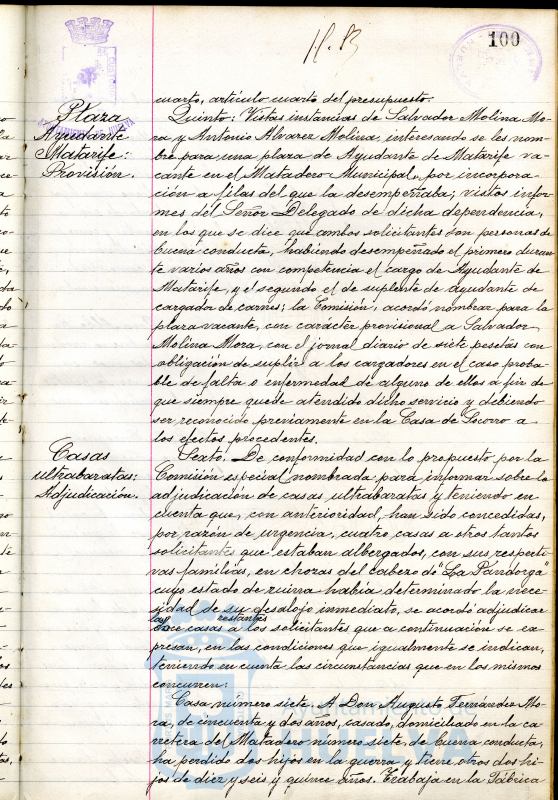 100
cuarto, artículo cuarto del presupuesto.
Plaza
Ayudante
Matarife:
Provisión.
Quinto: Vistas instancias de Salvador Molina Mo-
ra y Antonio Alvarez Molina, interesando se les nom-
bre para una plaza de Ayudante de Matarife va-
cante en el Matadero Municipal, por incorpora-
ción a filas del que la desempeñaba; vistos infor-
mes del Señor Delegado de dicha dependencia,
en los que se dice que ambos solicitantes son personas de
buena conducta, habiendo desempeñado el primero duran-
te varios años con competencia el cargo de Ayudante de
Matarife, y el segundo el de suplente de ayudante de
cargador de carnes; la Comisión, acordó nombrar para la
plaza vacante, con carácter provisional a Salvador
Molina Mora, con el jornal diario de siete pesetas con
obligación de suplir a los cargadores en el caso proba-
ble de falta o enfermedad de alguno de ellos a fin de
que siempre quede atendido dicho servicio y debiendo
ser reconocido previamente en la Casa de Socorro a
los efectos procedentes.
Casas
ultrabaratas:
Adjudicación.
Sexto: De conformidad con lo propuesto por la
Comisión especial nombrada para informar sobre la
adjudicación de casas ultrabaratas y teniendo en
cuenta que, con anterioridad, han sido concedidas,
por razón de urgencia, cuatro casas a otros tantos
solicitantes que estaban albergados, con sus respecti-
vas familias, en chozas del cabezo de "La Pandorga"
cuyo estado de ruina había determinado la nece-
sidad de su desalojo inmediato, se acordó adjudicar
las restantes
doce casas a los solicitantes que a continuación se ex-
presan, en las condiciones que igualmente se indican,
teniendo en cuenta las circunstancias que en los mismos
concurren:
Casa número siete. A Don Augusto Fernández Mo-
ra, de cincuenta y dos años, casado, domiciliado en la ca-
rretera del Matadero número siete, de buena conducta,
ha perdido dos hijos en la guerra y tiene otros dos hi-
jos de diez y seis y quince años. Trabaja en la Fábrica
Ayuntamiento
HUELVA